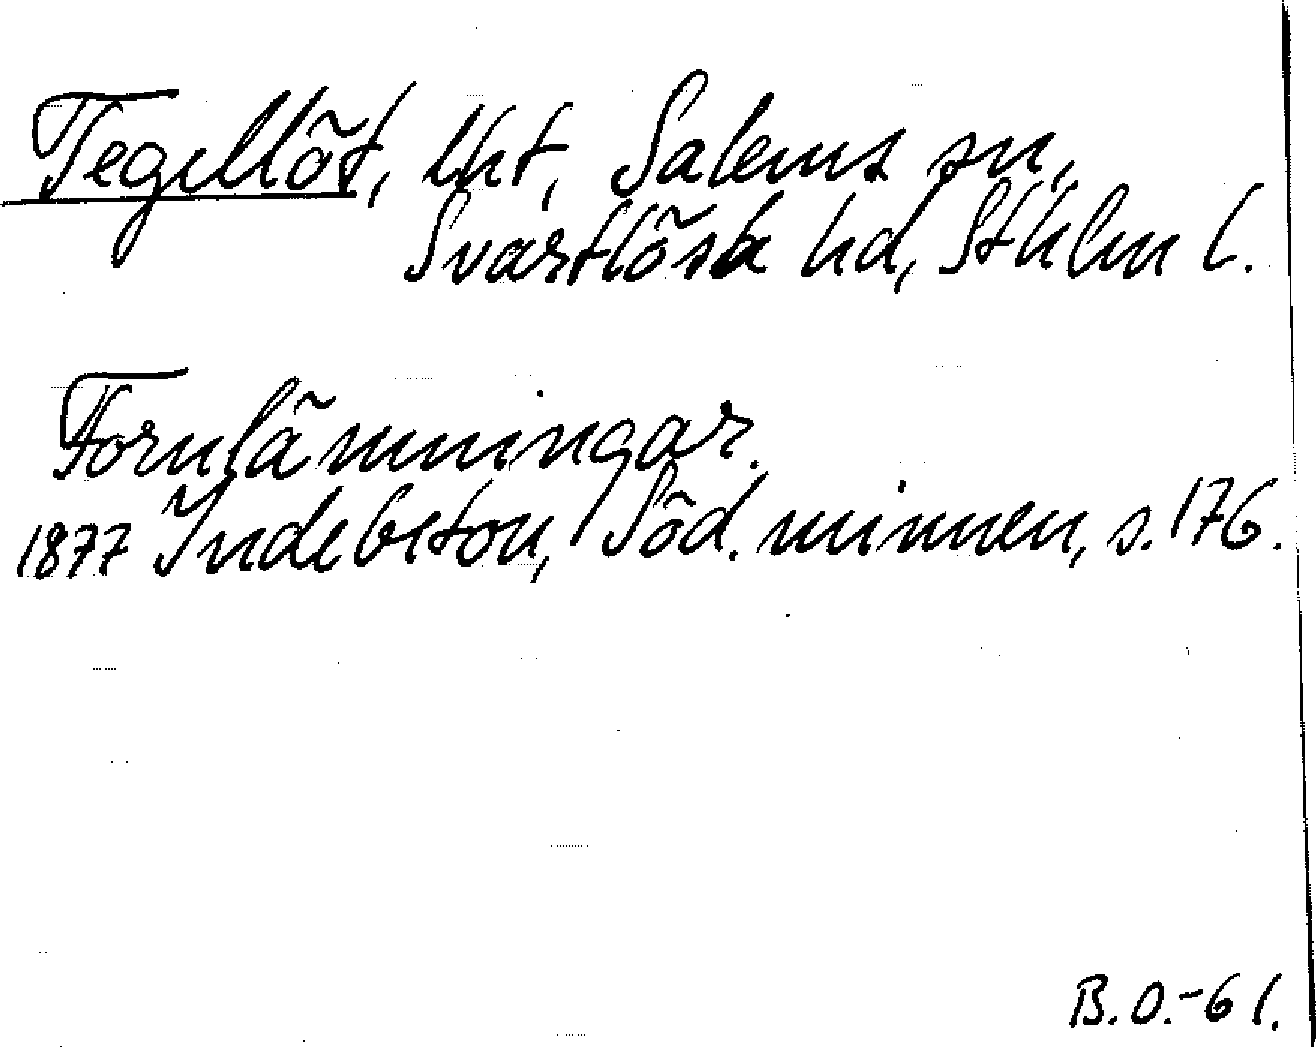 Tegellöt, lht, Salems sn,
Svartlösa hd, Sthlm l.
Fornlämningar.
1877 Indebetou, Söd. minnen, s. 176.
B.O.-61.